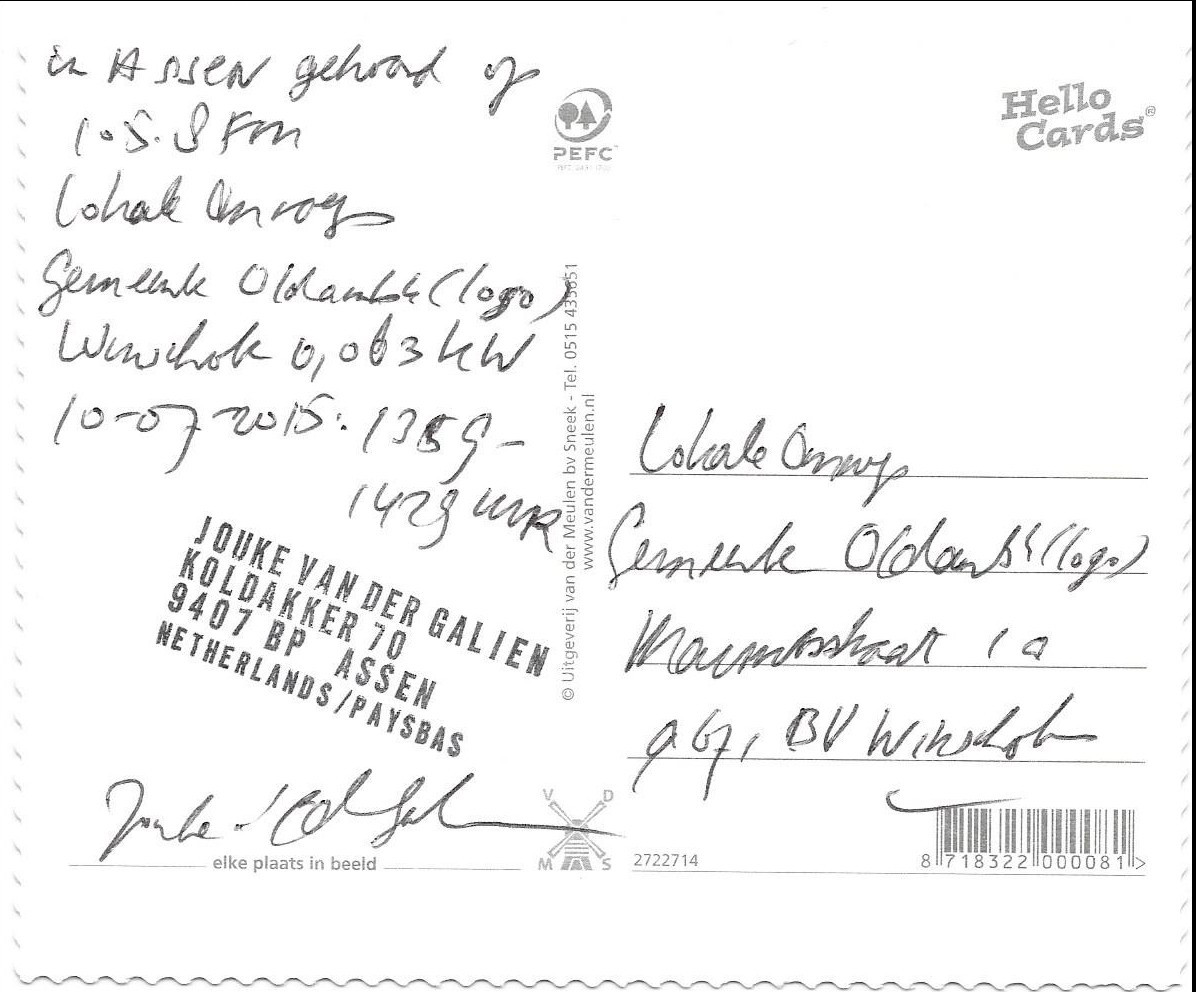 in ASSEN gehoord op
105.8 FM
Lokale Omroep
Gemeente Oldambt (logo)
Winschoten 0,063 kW
10-07-2015: 1359-
1429 UUR
JOUKE VAN DER GALIEN
KOLDAKKER 70
9407 BP ASSEN
NETHERLANDS/PAYSBAS
elke plaats in beeld
PEFC
© Uitgeverij van der Meulen bv Sneek - Tel. 0515 435651
www.vandermeulen.nl
V D
M S
Hello
Cards®
Lokale Omroep
Gemeente Oldambt (logo)
1a
9671 BV Winschoten
2722714
8 718322 000081 >